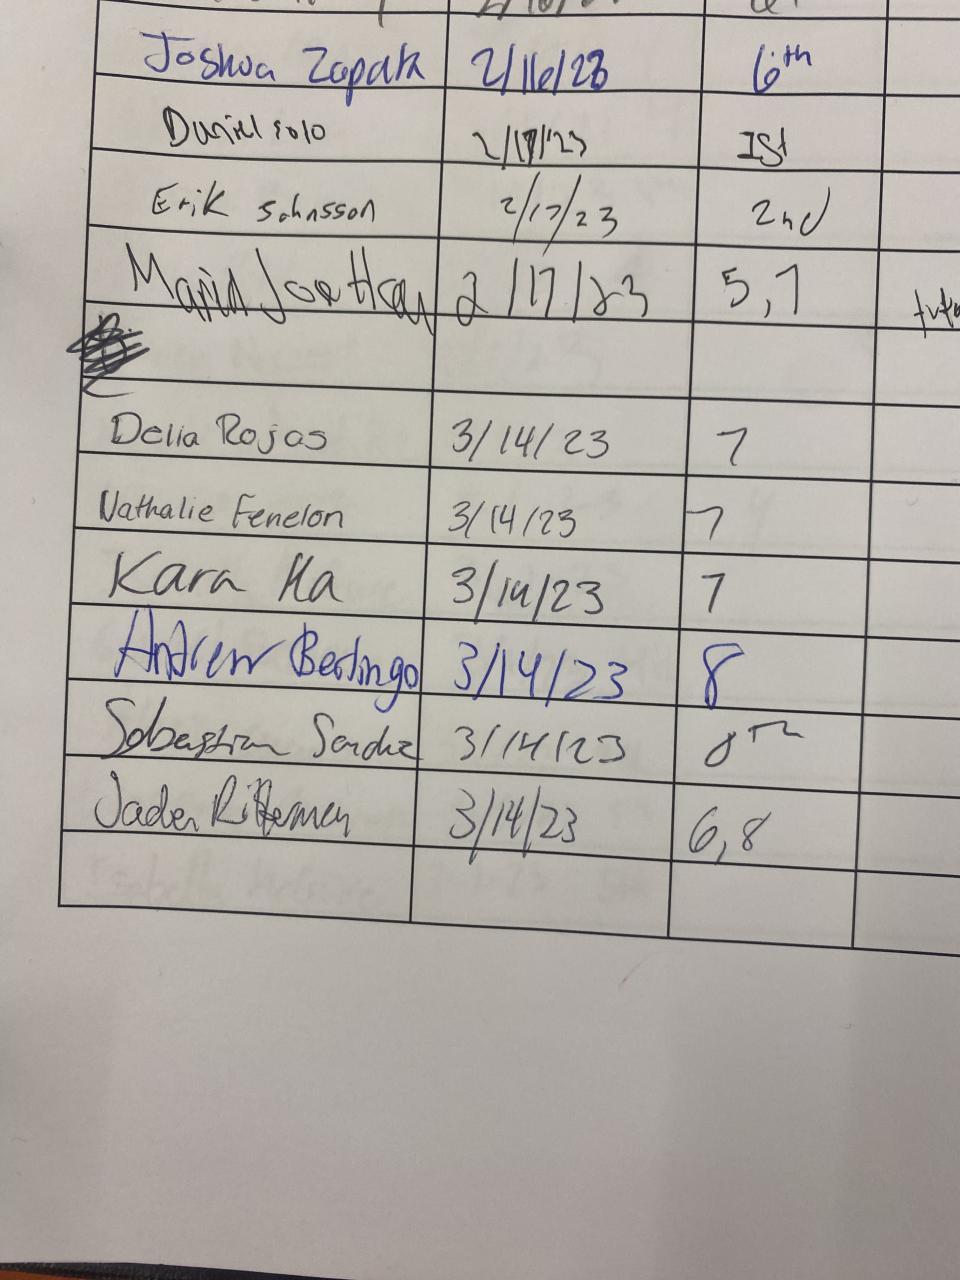 Joshua Zapata 2/16/23 6th
Daniel solo 2/17/23 1st
Erik Sohnsson 2/17/23 2nd
Maria Jose 2/17/23 5,7
Delia Rojas 3/14/23 7
Nathalie Fenelon 3/14/23 7
Kara Ha 3/14/23 7
Andrew Berlingo 3/14/23 8
Sebastian 3/14/23 8th
Jaden Ritterman 3/14/23 6,8